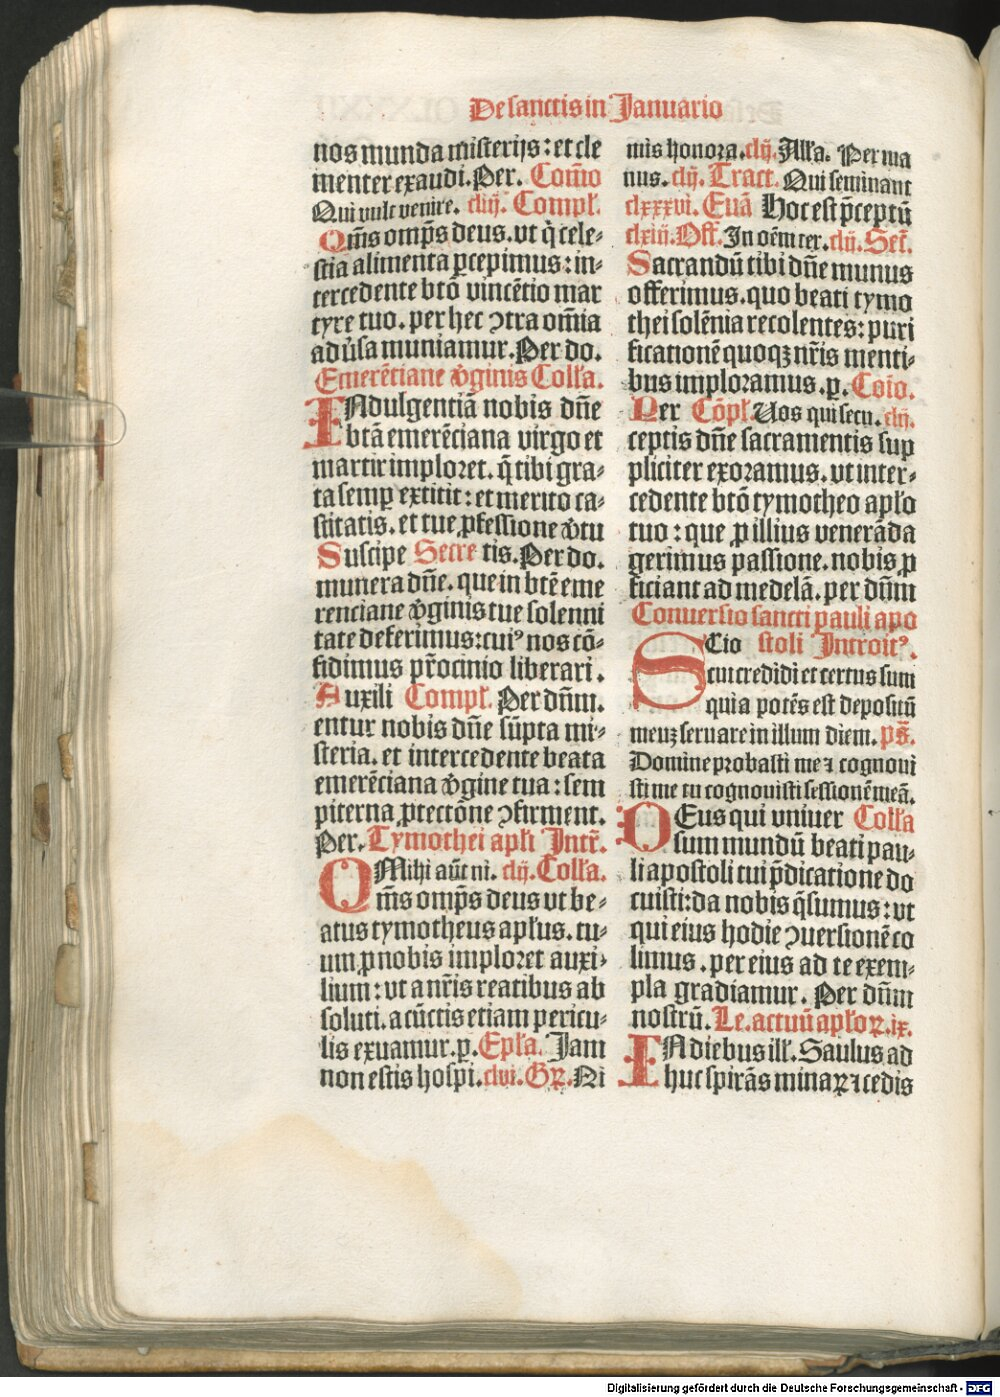 De sanctis in Januario
nos munda misterijs: et cle
menter exaudi. Per. Com̄io
Qui vult venire. cliij. Compl̄.
Qm̄s omp̄s deus. vt q̇ cele-
stia alimenta ꝑcepimus: in-
tercedente btō vincētio mar
tyre tuo. per hec ꝯtra om̄ia
aduͥsa muniamur. Per do.
Emerētiane v̓ginis Coll̄a.
INdulgentiā nobis dn̄e
btā emerēciana virgo et
martir imploret. q̄ tibi gra-
ta semꝑ extitit: et merito ca-
stitatis. et tue ꝓfessione v̓tu
Suscipe Secre tis. Per do.
munera dn̄e. que in btē eme
renciane v̓ginis tue solenni
tate deferimus: cuiꝰ nos cō-
fidimus pr̄ocinio liberari.
Auxili Compl̄. Per dn̄m.
entur nobis dn̄e sūpta mi-
steria. et intercedente beata
emerēciana v̓gine tua: sem
piterna ꝓtectōne ꝯfirment.
Per. Tymothei apl̄i Intr̄.
MIhi aūt ni. clij. Coll̄a.
Qm̄s omp̄s deus vt be-
atus tymotheus apl̄us. tu-
um ꝓ nobis imploret auxi-
lium: vt a nr̄is reatibus ab
soluti. a cūctis etiam pericu-
lis exuamur. p. Epl̄a. Jam
non estis hospi. clvi. Gꝝ. Ni
mis honora. clij. Alla. Per ma
nus. clij. Tract. Qui seminant
clxxxvi. Euā Hoc est p̄ceptū
clxiij. Off̄. In oēm ter. clij. Sec̄.
Sacrandū tibi dn̄e munus
offerimus. quo beati tymo
thei solēnia recolentes: puri
ficationē quoqꝫ nr̄is menti-
bus imploramus. p. Coīo.
Per Cōpl̄. Uos qui secu. clij.
ceptis dn̄e sacramentis sup
pliciter exoramus. vt inter-
cedente btō tymotheo apl̄o
tuo: que ꝓ illius venerāda
gerimus passione. nobis ꝓ
ficiant ad medelā. per dn̄m
Conuersio sancti pauli apo
SCio stoli Introitꝰ.
cui credidi et certus sum
quia potēs est depositū
meuꝫ seruare in illum diem. ps̄.
Domine probasti me ⁊ cognoui
sti me tu cognouisti sessionē meā.
DEus qui vniuer Coll̄a
sum mundū beati pau-
li apostoli tui p̄dicatione do
cuisti: da nobis q̄sumus: vt
qui eius hodie ꝯuersionē co
limus. per eius ad te exem-
pla gradiamur. Per dn̄m
nostrū. Le. actuū apl̄oꝝ. ix.
IN diebus ill̄. Saulus ad
huc spirās minaꝝ ⁊ cedis
Digitalisierung gefördert durch die Deutsche Forschungsgemeinschaft - DFG